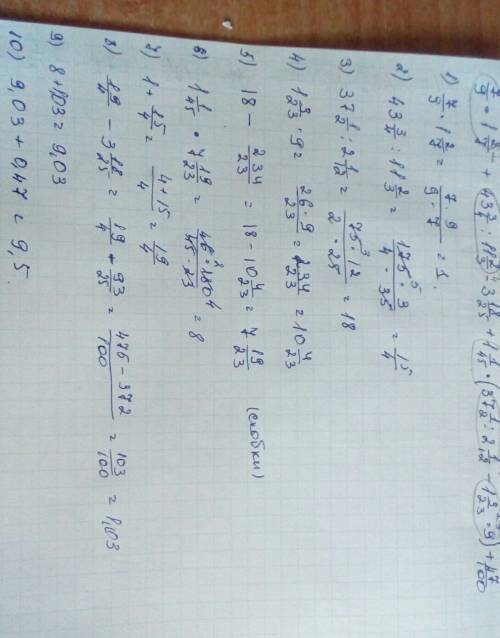 7/9 · 1 2/7 + 43 3/4 : 11 2/3 - 3 18/25 + 1 1/45 · (37 1/2 : 2 1/12 - 1 3/23 · 9) + 47/100
1) 7/9 · 1 2/7 = 7·9/9·7 = 1.
2) 43 3/4 : 11 2/3 = 175·3/4·35 = 15/4
3) 37 1/2 : 2 1/12 = 75·12/2·25 = 18
4) 1 3/23 · 9 = 26·9/23 = 234/23 = 10 4/23
5) 18 - 234/23 = 18 - 10 4/23 = 7 19/23 (скобки)
6) 1 1/45 · 7 19/23 = 46·180/45·23 = 8
7) 1 + 15/4 = 4+15/4 = 19/4
8) 19/4 - 3 18/25 = 19/4 - 93/25 = 475-372/100 = 103/100 = 1,03
9) 8 + 1,03 = 9,03
10) 9,03 + 0,47 = 9,5.